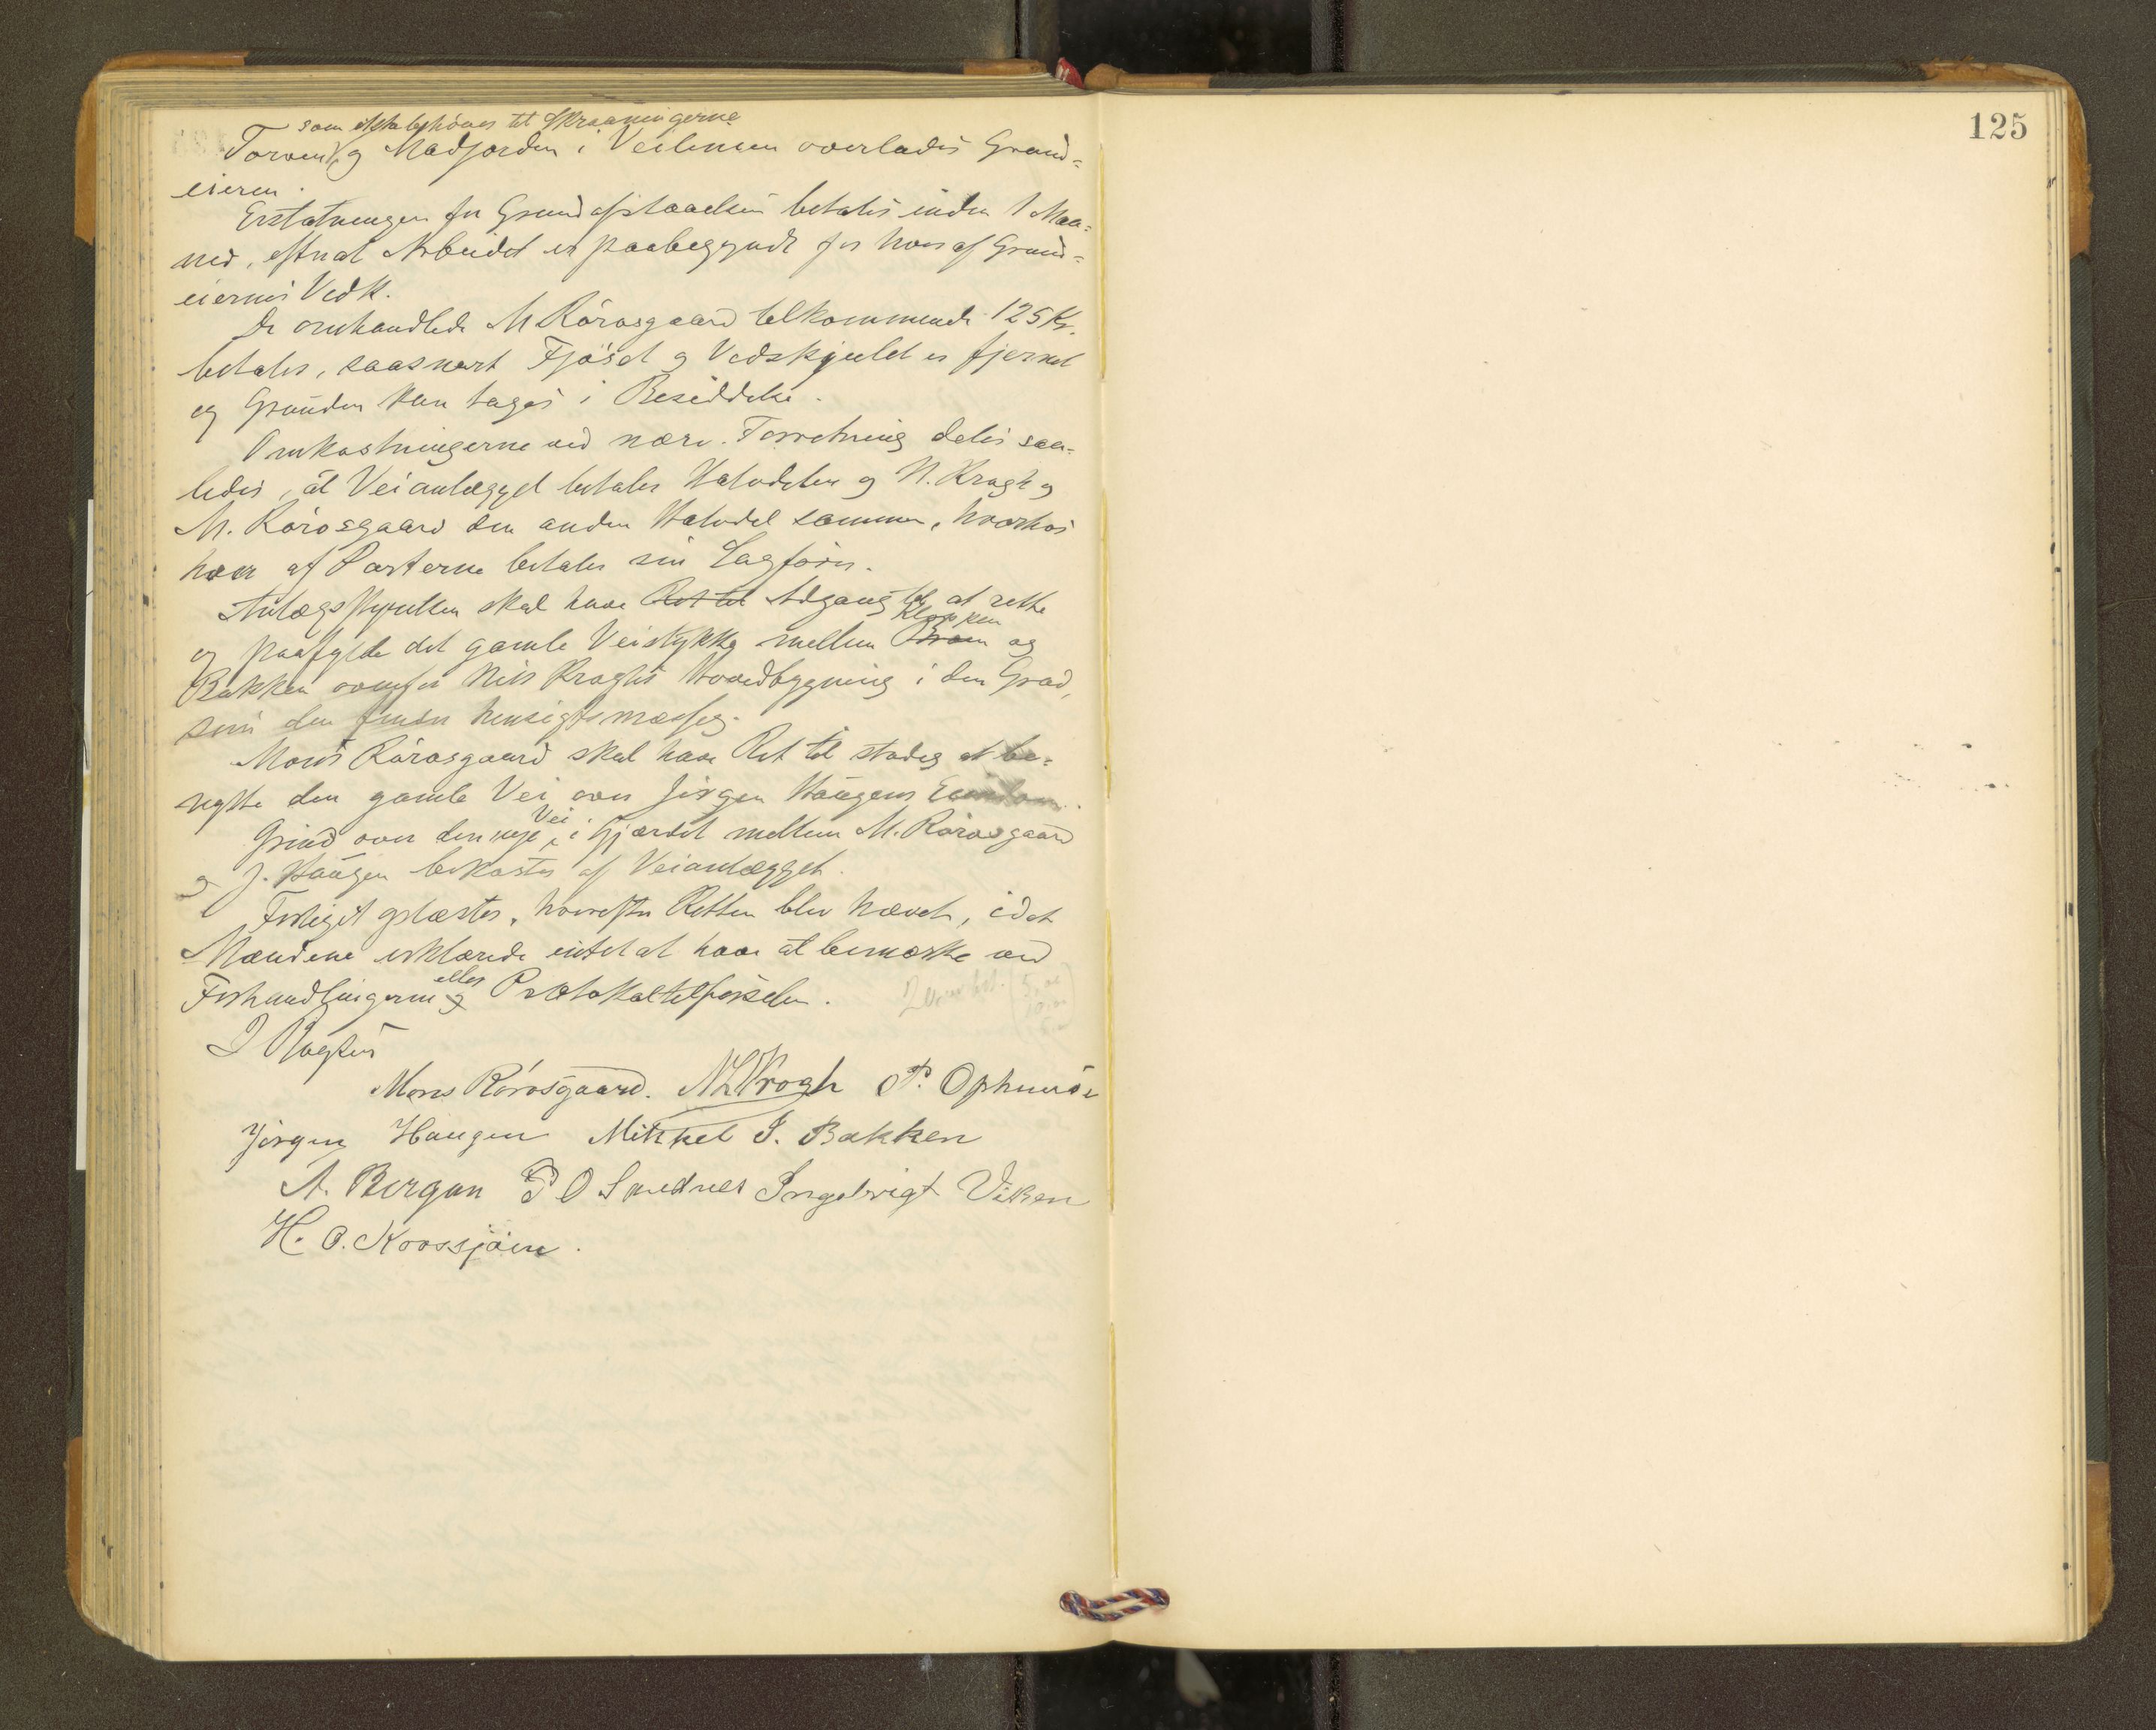 125
som ikke behöves til Skraaningerne
Torven og Madjorden i Veilinien overlades Grund-
eieren.
Erstatningen for Grundafstaaelsen betales inden 1 Maa-
ned, efterat Arbeidet er paabegyndt for hver af Grund-
eiernes Vedk.
De omhandlede M Rörosgaard tilkommende 125 Kr.
betales, saasnart Fjöset og Vedskjulet er fjernet
og Grunden kan tages i Besiddelse.
Omkostningerne ved nærv. Forretning deles saa-
ledes, at Veianlægget betaler Halvdelen og N. Krogh og
M. Rörosgaard den anden Halvdel sammen, hvorhos
hver af Parterne betaler sin Sagförer.
Anlægsstyrelsen skal have Ret til Adgang til at rette
Klopken
og paafylde det gamle Veistykke mellem Broen og
Bakken ovenfor Nils Kroghs Hovedbygning i den Grad,
som den finder hensigtsmæssig.
Mons Rörosgaard skal have Ret til stadig at be-
nytte den gamle Vei over Jörgen Haugens Eiendom.
Vei
Grind over den nye i Gjærdet mellem M. Rörosgaard
og J. Haugen bekostes af Veianlægget.
Forliget oplæstes, hvorefter Retten blev hævet, idet
Mændene erklærede intet at have at bemærke ved
eller
Forhandlingerne og Protokoltilförselen.
Mons Rörosgaard. N L Krogh P. Ophus
Jörgen Haugen Mikkel J. Bakken
A. Borgan P O Sundnes Ingebrigt Viken
H. O. Kovssjöen.